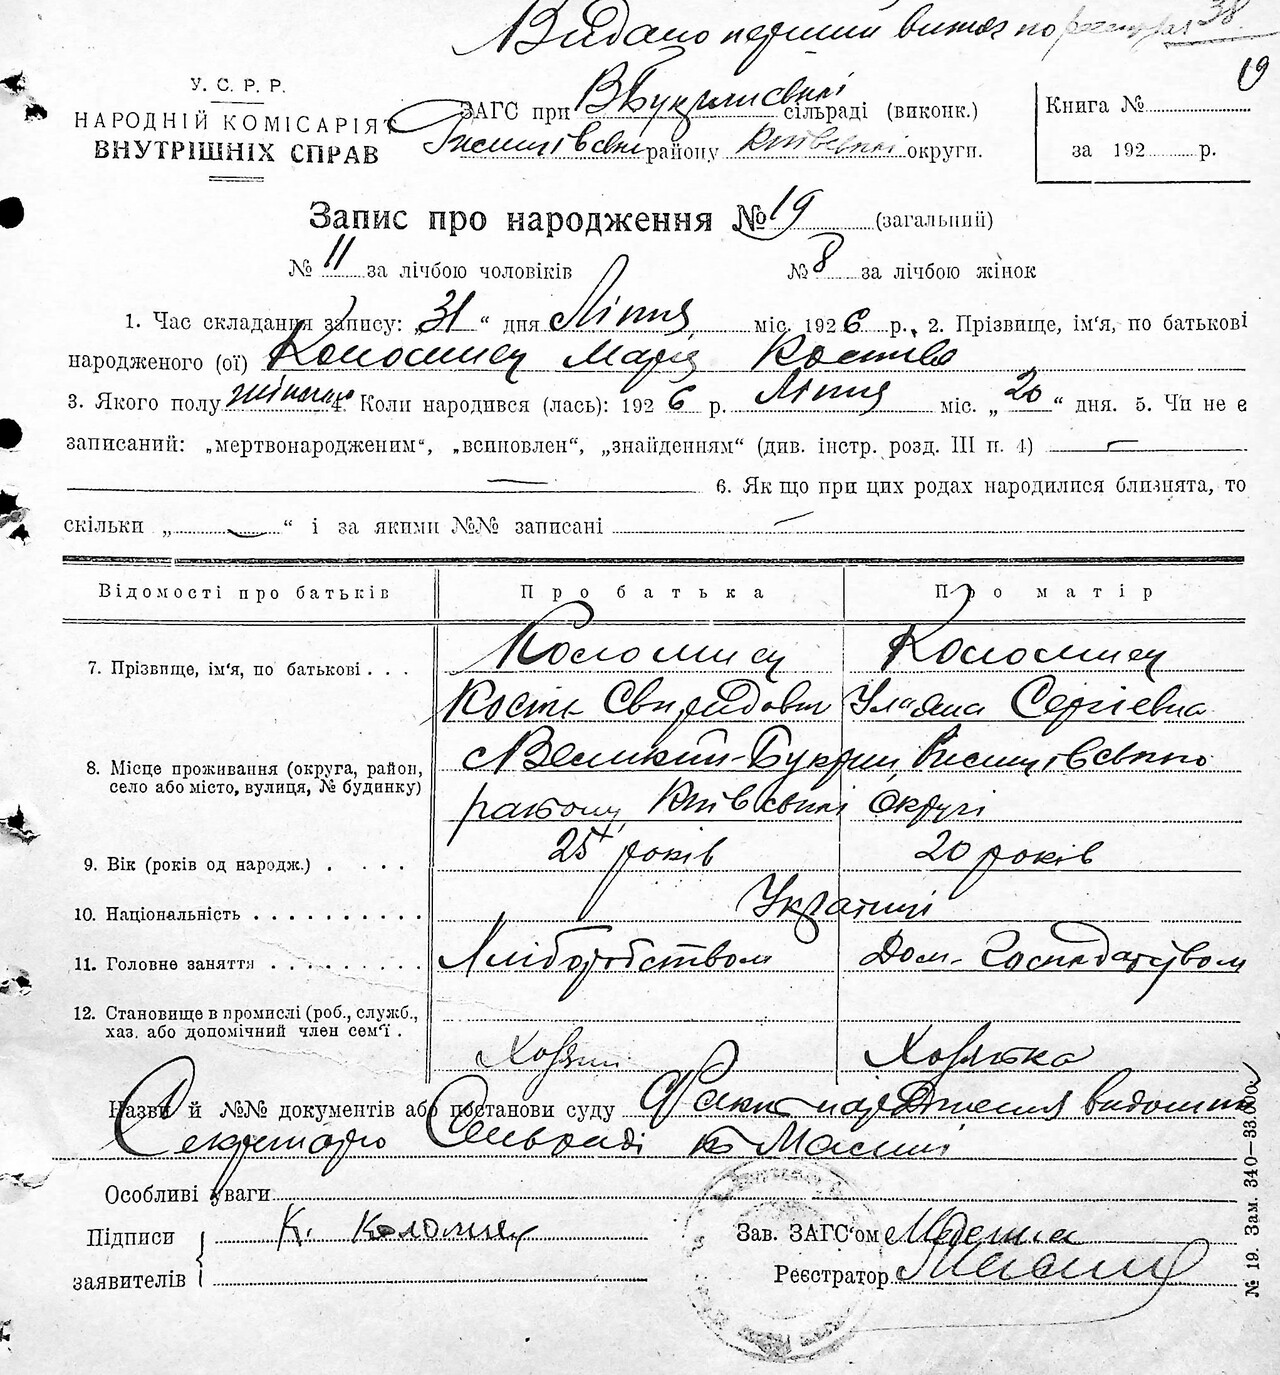 Видано перший витяг по 38
19
У. С. Р. Р.
НАРОДНІЙ КОМІСАРІЯТ
ВНУТРІШНІХ СПРАВ
ЗАГС при ВБукринській сільраді (виконк.)
району Київської округи.
Книга №
за 192 р.
Запис про народження № 19 (загальний)
№ 11 за лічбою чоловіків № 8 за лічбою жінок
1. Час складання запису: „31“ дня Липня міс. 1926 р. 2. Прізвище, ім'я, по батькові
народженого (ої) Коломиец Марія Костівна
3. Якого полу жіноч. 4. Коли народився (лась): 1926 р. Липня міс. „20“ дня. 5. Чи не є
записаний: „мертвонародженим“, „всиновлен“, „знайденням“ (див. інстр. розд. III п. 4) —
— 6. Як що при цих родах народилися близнята, то
скільки „—“ і за якими №№ записані —
Відомості про батьків Про батька Про матір
7. Прізвище, ім'я, по батькові . . . Коломиец Коломиец
Кость Свиридович Уляна Сергіевна
8. Місце проживання (округа, район,
село або місто, вулиця, № будинку)
с Великий-Букрин
району Київської Округи
9. Вік (років од народж.) . . . . . 25 років 20 років
10. Національність . . . . . . . . . . Українці
11. Головне заняття . . . . . . . . . Хліборобством Дом. Господарством
12. Становище в промислі (роб., служб.,
хаз. або допомічний член сем'ї .
Хозяин Хозяйка
Назви й №№ документів або постанови суду Факт народження
Секретарю Сільради
Особливі уваги
Підписи
заявителів
К. Коломиец
Зав. ЗАГС'ом
Реєстратор
№ 19. Зам. 340—33.000.